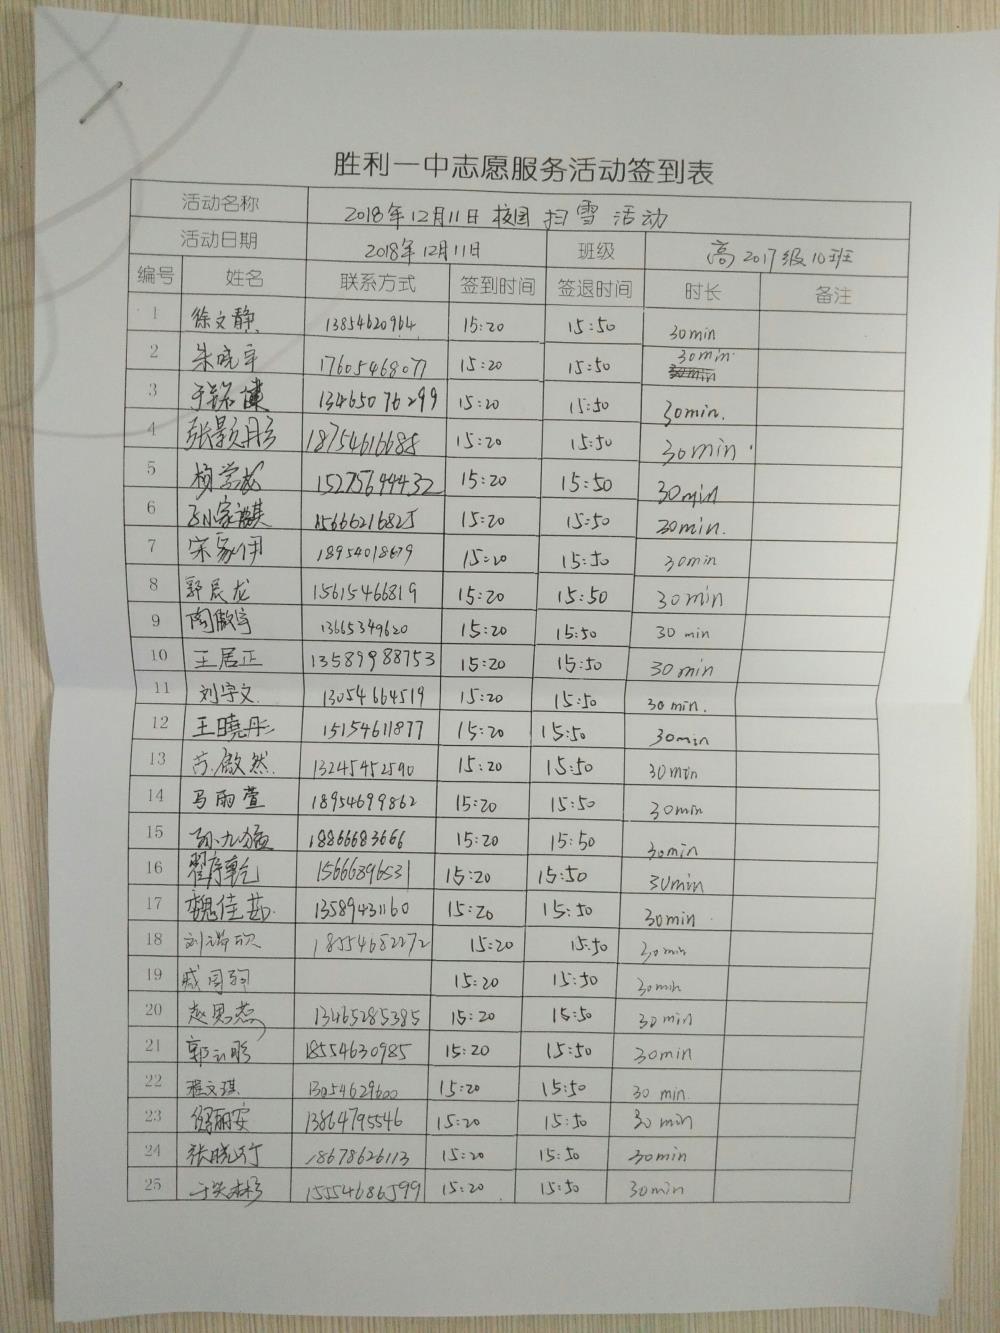 胜利一中志愿服务活动签到表
活动名称 2018年12月11日 校园 扫雪 活动
活动日期 2018年12月11日 班级 高2017级10班
编号 姓名 联系方式 签到时间 签退时间 时长 备注
1 徐文静 13854620964 15:20 15:50 30min
2 朱晓宇 17605468077 15:20 15:50 30min
3 于铭谦 13465076299 15:20 15:50 30min.
4 张颢彤 18754616685 15:20 15:50 30min
5 杨学成 15275694432 15:20 15:50 30min
6 孙家麒 15666216825 15:20 15:50 30min.
7 宋家伊 18954018679 15:20 15:50 30min
8 郭辰龙 15615466819 15:20 15:50 30min
9 陶傲宇 13665349620 15:20 15:50 30 min
10 王居正 13589988753 15:20 15:50 30min
11 刘宇文 13054664519 15:20 15:50 30min.
12 王晓彤 15154611877 15:20 15:50 30min
13 苏傲然 13245452590 15:20 15:50 30min
14 马雨萱 18954699862 15:20 15:50 30min
15 孙九 18866683666 15:20 15:50 30min
16 翟序乾 15666896531 15:20 15:50 30min
17 魏佳茹 13589431160 15:20 15:50 30min
18 刘 18554682272 15:20 15:50 30min
19 戚 15:20 15:50 30min
20 赵思蕊 13465285385 15:20 15:50 30min
21 郭 18554630985 15:20 15:50 30min
22 程文琪 13054629600 15:20 15:50 30 min
23 丽安 13864795546 15:20 15:50 30min
24 张晓行 18678626113 15:20 15:50 30min
25 于 15554686599 15:20 15:50 30min